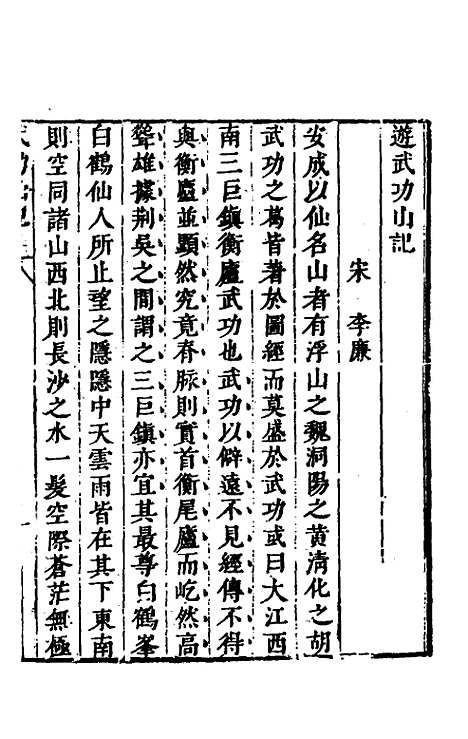 遊武功山記
宋 李廉
安成以仙名山者有浮山之魏洞陽之黃淸化之胡
武功之葛皆著於圖經而莫盛於武功或曰大江西
南三巨鎮衡廬武功也武功以僻遠不見經傳不得
與衡廬並顯然究竟脊脉則實首衡尾廬而屹然高
聳雄據荆吳之間謂之三巨鎮亦宜其最尊曰鶴峯
白鶴仙人所止望之隱隱中天雲雨皆在其下東南
則空同諸山西北則長沙之水一髮空際蒼茫無極